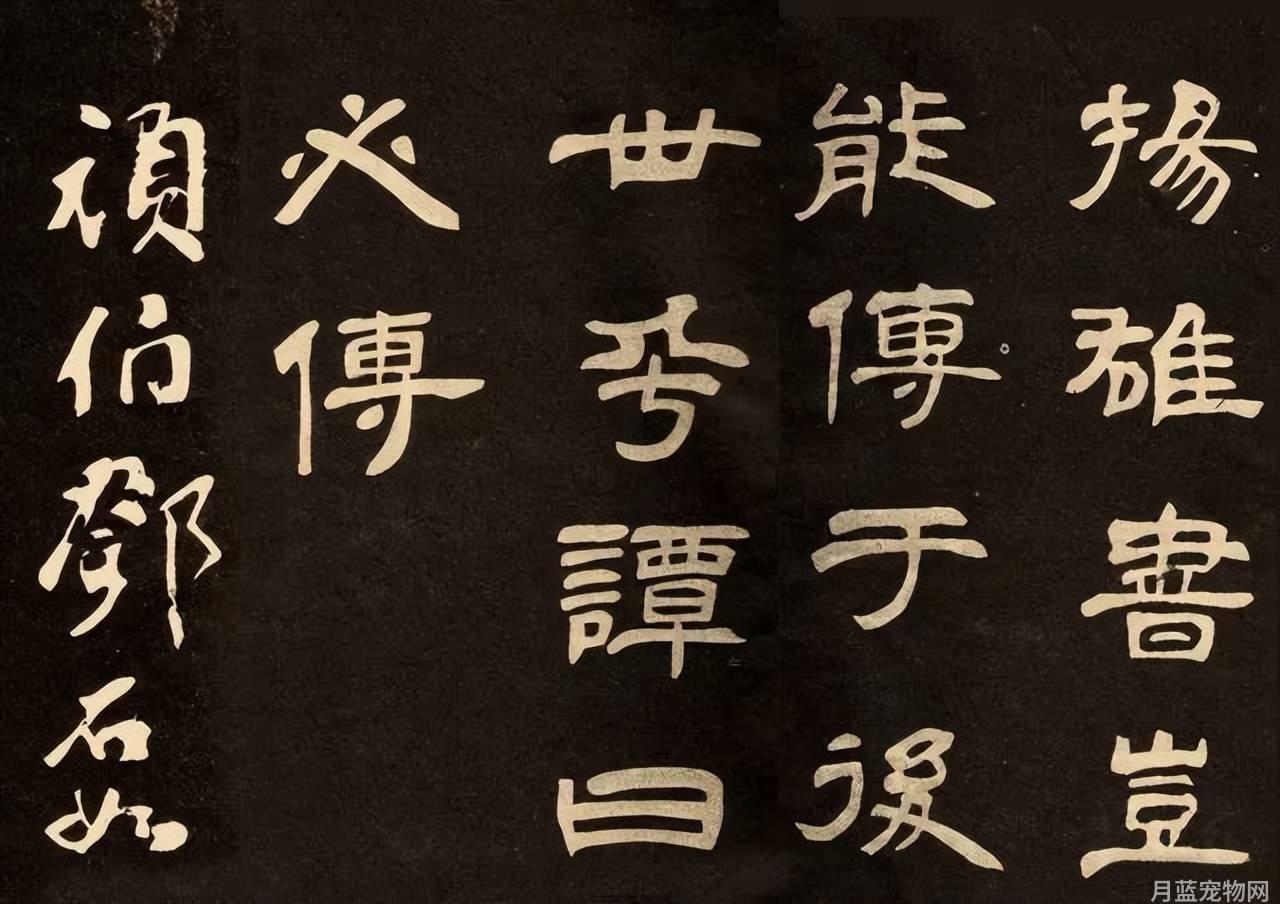 揚雄書豈
能傳于後
世乎譚曰
必傳
頑伯鄧石如
月蓝宠物网